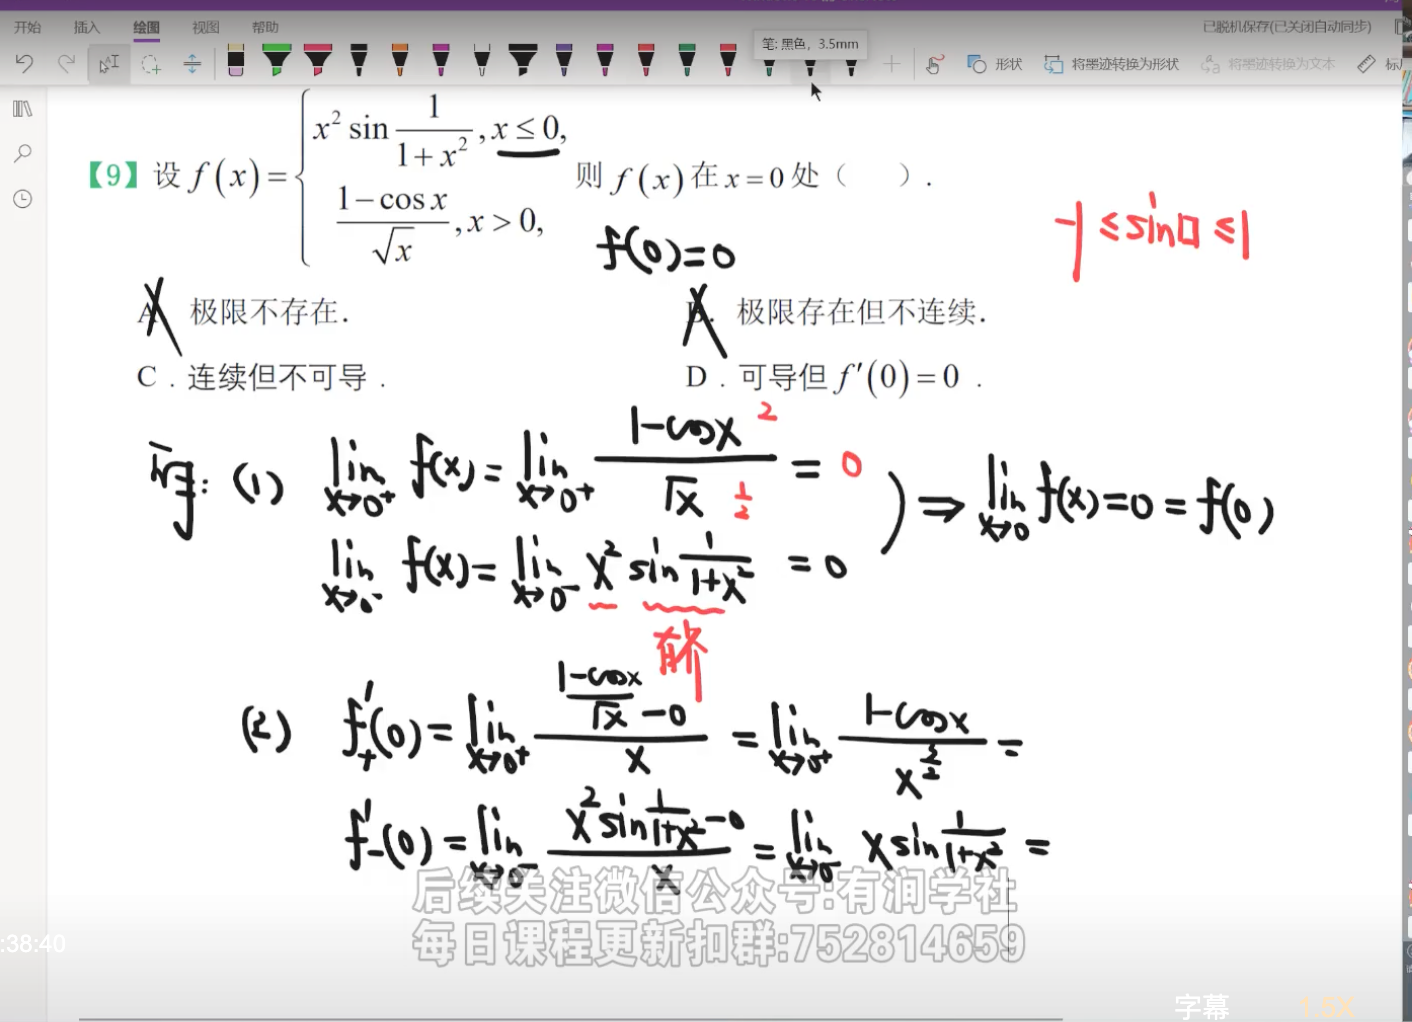 开始 插入 绘图 视图 帮助 已脱机保存(已关闭自动同步)
笔: 黑色, 3.5mm
形状 将墨迹转换为形状 将墨迹转换为文本
【9】设 f(x) = { x² sin 1/(1+x²), x ≤ 0, (1−cos x)/√x, x > 0, 则 f(x) 在 x = 0 处（ ）.
-1 ≤ sin□ ≤ 1
f(0)=0
A. 极限不存在. B. 极限存在但不连续.
C. 连续但不可导. D. 可导但 f′(0) = 0 .
(1) lim x→0⁺ f(x) = lim x→0⁺ (1-cosx)/√x = 0
2
1/2
lim x→0⁻ f(x) = lim x→0⁻ x² sin 1/(1+x²) = 0
) ⇒ lim x→0 f(x)=0=f(0)
有界
(2) f₊′(0) = lim x→0⁺ ((1-cosx)/√x -0)/x = lim x→0⁺ (1-cosx)/x^(3/2) =
f₋′(0) = lim x→0⁻ (x² sin 1/(1+x²) -0)/x = lim x→0⁻ x sin 1/(1+x²) =
后续关注微信公众号:有润学社
每日课程更新扣群:752814659
:38:40
字幕 1.5X